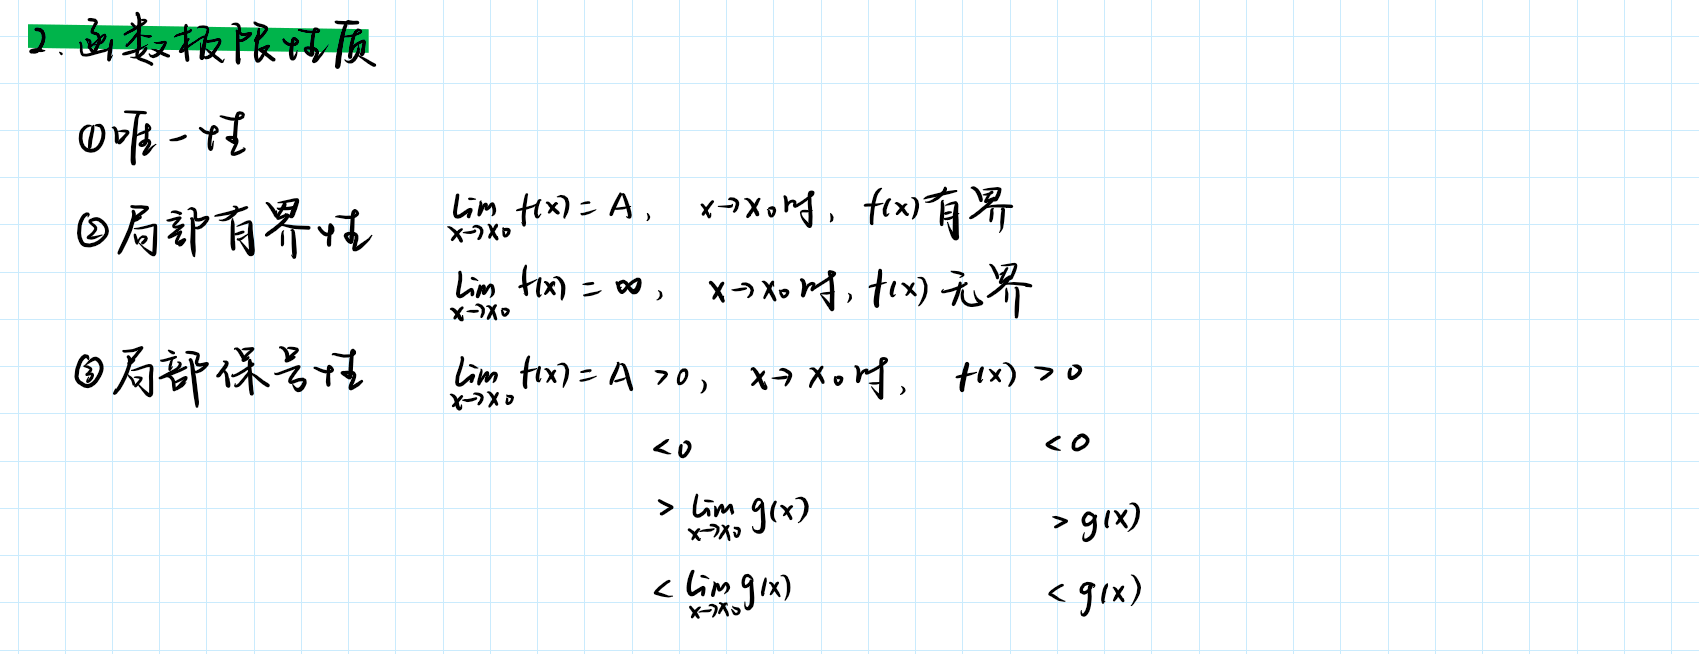 2. 函数极限性质
①唯一性
②局部有界性 lim x→x₀ f(x) = A, x→x₀时, f(x)有界
lim x→x₀ f(x) = ∞, x→x₀时, f(x)无界
③局部保号性 lim x→x₀ f(x) = A >0, x→x₀时, f(x) >0
<0 <0
> lim x→x₀ g(x) > g(x)
< lim x→x₀ g(x) < g(x)